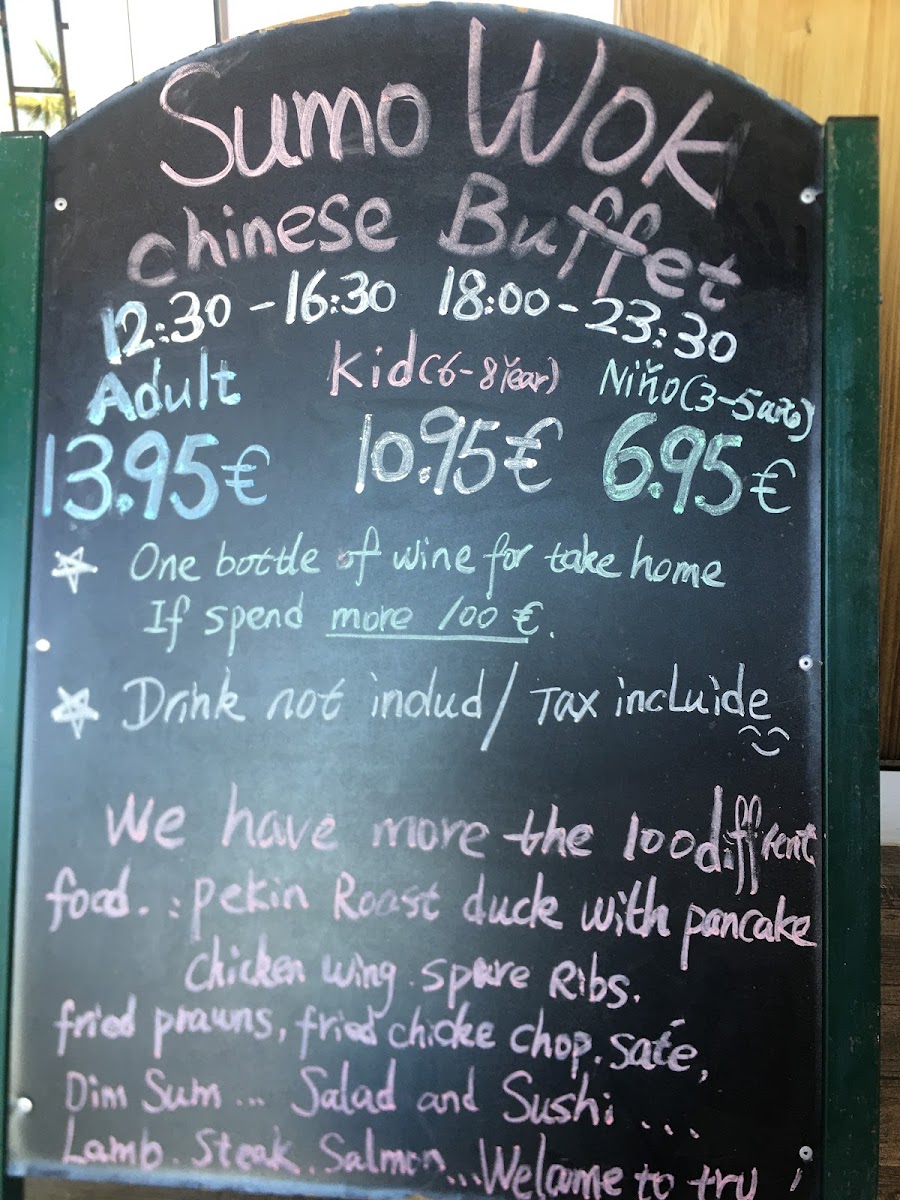 Sumo Wok
Chinese Buffet
12:30 - 16:30 18:00 - 23:30
Adult Kid (6-8 Year) Niño (3-5 año)
13.95€ 10.95€ 6.95€
One bottle of wine for take home
If spend more 100 €.
Drink not includ / Tax incluide
We have more the 100 diffrent
food. : pekin Roast duck with pancake
chicken wing. spare Ribs.
fried prawns, fried chicke chop. saté,
Dim Sum ... Salad and Sushi ...
Lamb. Steak. Salmon...Welcome to try !